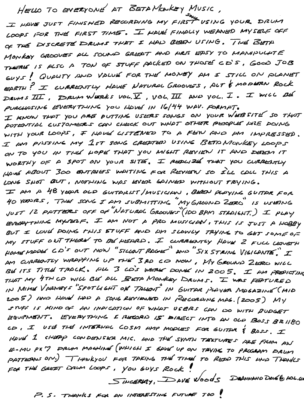 Hello to everyone at Beta Monkey Music,
I have just finished recording my first using your drum
loops for the first time. I have finally weaned myself off
of the discrete drums that I had been using. The Beta
Monkey grooves all sound great and are easy to manipulate
there is also a ton of stuff packed on those CD's, good job
guys! Quality and value for the money am I still on planet
Earth? I currently have Natural Grooves, Alt & Modern Rock
Drums III, Drum Werks Vol. V, Vol. III and Vol. I. I will be
purchasing everything you have in 16/44 wav. format.
I know that you are putting users songs on your website so that
potential customers can check out what other people are doing
with your loops, I have listened to a few and am impressed.
I am putting my 1st song created using Beta Monkey loops
on to you in the hope that you might review it and deem it
worthy of a spot on your site. I realize that you currently
have about 300 entries waiting for review so I'll call this a
long shot but, nothing was ever gained without trying.
I am a 48 year old guitarist/musician. Been playing guitar for
40 years. The song I am submitting "My Ground Zero" is using
just 12 patterns out of "Natural Grooves" (100 BPM straight). I play
everything myself. I am not a pro musician, this is just a hobby
but I love doing this stuff and am slowly trying to get some of
my stuff out there to be heard. I currently have 2 full length
home made CD's out now "Silent Room" and "Sicstring Vigilante", I
am currently wrapping up the 3rd CD now, My Ground Zero will
be its title track. All 3 CD's were done in 2005, I am predicting
that my 4th CD will be all Beta Monkey drums. I was featured
in Mike Varney's "Spotlight on Talent" in Guitar Player Magazine (
2005) and have had a song reviewed in Recording Mag. (2005) My
stuff is kind of an indication of what users can do with budget
equipment. Everything I record is direct into an old Boss BR1180
CD. I use the internal COSM amp models for guitar & bass. I
have 1 cheap condenser mic. And the synth textures are from an
E-mu PK7 drum machine (which I gave up on trying to program drum
patterns on) Thankyou for taking the time to read this and thanks
for the great drum loops. You guys rock!
Sincerely, Dave Woods
P.S. Thanks for an interesting future too!